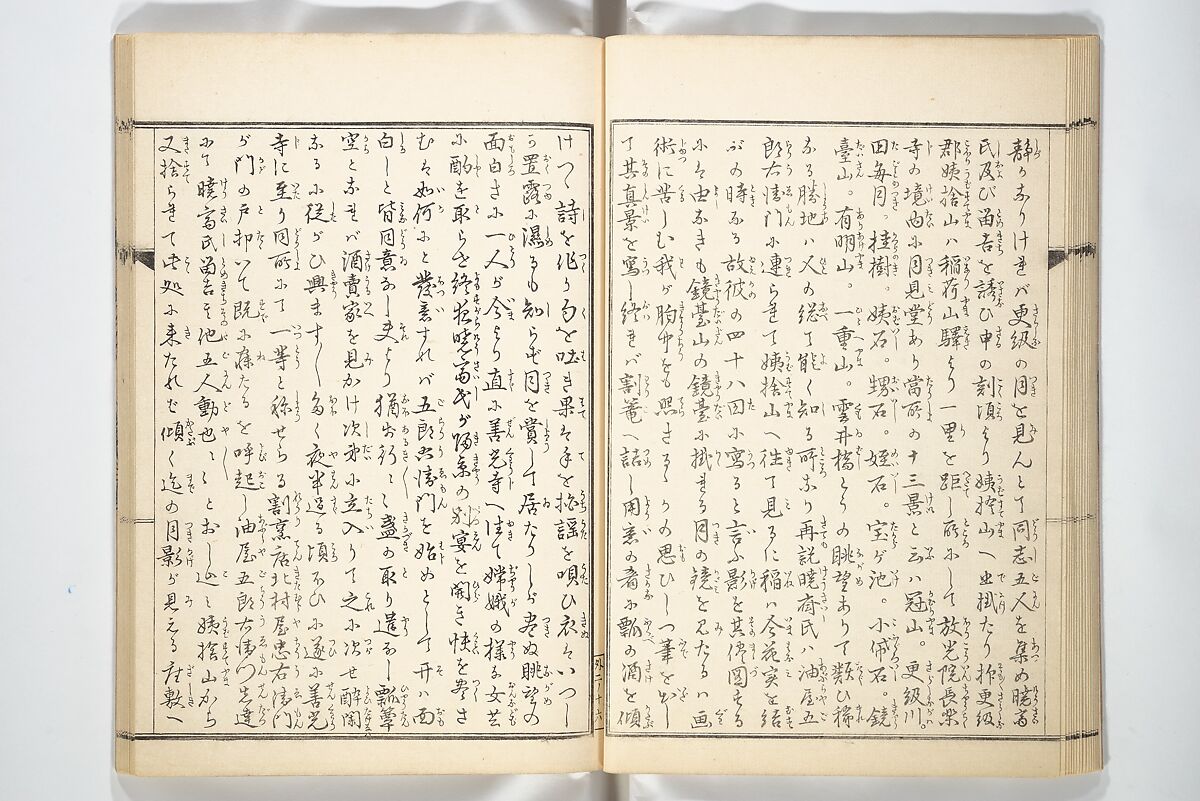 静かなりければ更級の月を見んとて同志五人を集め暁斎
氏及び留吉を誘ひ申の刻頃より姨捨山へ出掛たり抑更級
郡姨捨山ハ稲荷山駅より一里を距し所にして放光院長楽
寺の境内に月見堂あり当所の十三景と云ハ冠山。更級川。
田毎月。桂樹。姨石。甥石。姪石。宝が池。小俤石。鏡
臺山。有明山。一重山。雲井橋とりの眺望ありて類ひ稀
なる勝地ハ人の総て能く知る所なり再説暁斎氏ハ油屋五
郎右衛門に連られて姨捨山へ往て見るに稲ハ今花実を結
ぶの時なる故彼の四十八図に写ると言ふ影を其儘図する
に由なきも鏡臺山の鏡臺に掛れる月の鏡を見たるハ画
術に苦しむ我が胸中をも照さるゝかの思ひしつ筆を出し
て其真景を写し終れバ割篭へ詰し用意の肴に瓢の酒を傾
けつゝ詩を作り句を吐き果は手を拍謡を唄ひ衣はいつし
か置露に濡るも知らず月を賞して居たりしが尽ぬ眺望の
面白さに一人が今より直に善光寺へ往て嫦娥の様な女共
に酌を取らせ終夜暁斎氏が帰京の別宴を開き快を尽さ
むは如何にと発意すれバ五郎右衛門を始めとして开ハ面
白しと皆同意なし夫より猶お行々も盞の取り遣なし瓢箪
空となれバ酒売家を見かけ次第に立入りて之に次せ酔闌
なるに従がひ興ますます多く夜半過る頃ろひに遂に善光
寺に至り同所にて一等と称せらる割烹店北村屋忠右衛門
が門の戸叩いて既に寐たるを呼起し油屋五郎右衛門先達
にて暁斎氏留吉其他五人動也々々とおし込み姨捨山から
又捨られて此処に来たれど傾く迄の月影が見える座敷へ
外二 十六